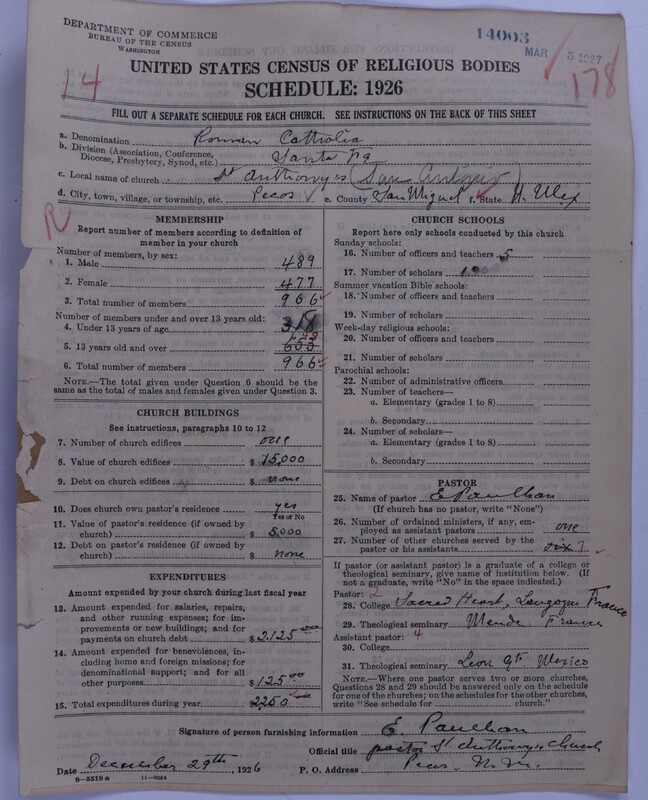 DEPARTMENT OF COMMERCE
BUREAU OF THE CENSUS
WASHINGTON
14003
MAR 5 1927
14
178
UNITED STATES CENSUS OF RELIGIOUS BODIES
SCHEDULE: 1926
FILL OUT A SEPARATE SCHEDULE FOR EACH CHURCH. SEE INSTRUCTIONS ON THE BACK OF THIS SHEET
a. Denomination Roman Catholic
b. Division (Association, Conference, Diocese, Presbytery, Synod, etc.) Santa Fe
c. Local name of church St Anthony's (San Antonio)
d. City, town, village, or township, etc. Pecos e. County San Miguel f. State N. Mex
R
MEMBERSHIP
Report number of members according to definition of
member in your church
Number of members, by sex:
1. Male 489
2. Female 477
3. Total number of members 966
Number of members under and over 13 years old:
4. Under 13 years of age 318
5. 13 years old and over 653
6. Total number of members 966
NOTE.—The total given under Question 6 should be
the same as the total of males and females given under Question 3.
CHURCH BUILDINGS
See instructions, paragraphs 10 to 12
7. Number of church edifices one
8. Value of church edifices $ 15,000
9. Debt on church edifices $ none
10. Does church own pastor's residence yes
Yes or No
11. Value of pastor's residence (if owned by
church) $ 5,000
12. Debt on pastor's residence (if owned by
church) $ none
EXPENDITURES
Amount expended by your church during last fiscal year
13. Amount expended for salaries, repairs,
and other running expenses; for im-
provements or new buildings; and for
payments on church debt $ 2,125.00
14. Amount expended for benevolences, in-
cluding home and foreign missions; for
denominational support; and for all
other purposes $ 125.00
15. Total expenditures during year $ 2250
CHURCH SCHOOLS
Report here only schools conducted by this church
Sunday schools:
16. Number of officers and teachers 5
17. Number of scholars
Summer vacation Bible schools:
18. Number of officers and teachers
19. Number of scholars
Week-day religious schools:
20. Number of officers and teachers
21. Number of scholars
Parochial schools:
22. Number of administrative officers
23. Number of teachers—
a. Elementary (grades 1 to 8)
b. Secondary
24. Number of scholars—
a. Elementary (grades 1 to 8)
b. Secondary
PASTOR
25. Name of pastor E Paulhan
(If church has no pastor, write "None")
26. Number of ordained ministers, if any, em-
ployed as assistant pastors one
27. Number of other churches served by the
pastor or his assistants six 7
If pastor (or assistant pastor) is a graduate of a college or
theological seminary, give name of institution below. (If
not a graduate, write "No" in the space indicated.)
Pastor: 2
28. College Sacred Heart, Langogne France
29. Theological seminary Mende France
Assistant pastor: 4
30. College
31. Theological seminary Leon Gto Mexico
NOTE.—Where one pastor serves two or more churches,
Questions 28 and 29 should be answered only on the schedule
for one of the churches; on the schedules for the other churches,
write "See schedule for ........ church."
Signature of person furnishing information E. Paulhan
Official title pastor St Anthony's church
Date December 29th, 1926 P. O. Address Pecos. N. M.
8—5518 a 11—9024